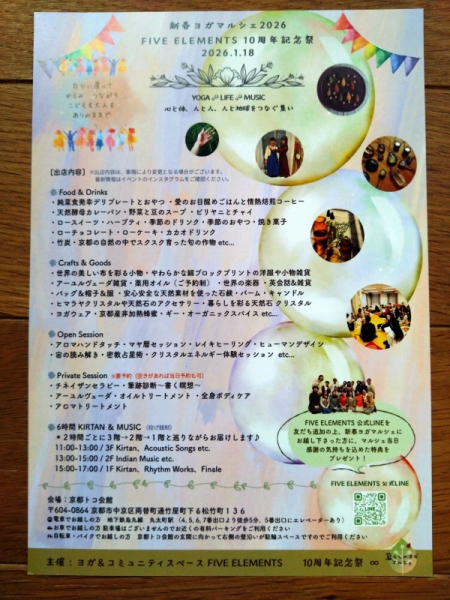 新春ヨガマルシェ2026
FIVE ELEMENTS 10周年記念祭
2026.1.18
YOGA LIFE MUSIC
心と体、人と人、人と地球をつなぐ集い
【出店内容】 ※出店内容は、事情により変更となる場合がございます。
最新情報はイベントのインスタグラムをご確認ください。
Food & Drinks
・純菜食発幸デリプレートとおやつ ・愛のお目醒めごはんと情熱焙煎コーヒー
・天然酵母カレーパン・野菜と豆のスープ ・ビリヤニとチャイ
・ロースイーツ・ハーブティ・季節のドリンク・季節のおやつ・焼き菓子
・ローチョコレート・ローケーキ・カカオドリンク
・竹炭・京都の自然の中でスクスク育った旬の作物 etc...
Crafts & Goods
・世界の美しい布を彩る小物・やわらかな綿ブロックプリントの洋服や小物雑貨
・アーユルヴェーダ雑貨・薬用オイル(ご予約制) ・世界の楽器 ・英会話&雑貨
・バッグ&帽子&服 ・安心安全な天然素材を使った石鹸・バーム・キャンドル
・ヒマラヤクリスタルや天然石のアクセサリー・暮らしを彩る天然石 クリスタル
・ヨガウェア・京都産非加熱蜂蜜・ギー・オーガニックスパイス etc...
Open Session
・アロマハンドタッチ・マヤ暦セッション・レイキヒーリング・ヒューマンデザイン
・宙の読み解き・密教占星術・クリスタルエネルギー体験セッション etc...
Private Session ※要予約(空きがあれば当日予約も可)
・チネイザンセラピー・筆跡診断〜書く瞑想〜
・アーユルヴェーダ・オイルトリートメント・全身ボディケア
・アロマトリートメント
6時間 KIRTAN & MUSIC (投げ銭制)
＊2時間ごとに3階→2階→1階と巡りながらお届けします♪
11:00-13:00 / 3F Kirtan、Acoustic Songs etc.
13:00-15:00 / 2F Indian Music etc.
15:00-17:00 / 1F Kirtan、Rhythm Works、Finale
FIVE ELEMENTS 公式LINEを
友だち追加の上、新春ヨガマルシェに
お越し下さった方に、マルシェ当日
感謝の気持ちを込めた特典を
プレゼント！
FIVE ELEMENTS 公式LINE
会場：京都トコ会館
〒604-0864 京都市中京区両替町通竹屋町下る松竹町136
電車でお越しの方 地下鉄烏丸線 丸太町駅(4、5、6、7番出口より徒歩5分、5番出口にエレベーターあり)
お車でお越しの方 駐車場はございませんのでお近くの有料パーキングをご利用ください
自転車・バイクでお越しの方 京都トコ会館の玄関に向かって右側の壁沿いが駐輪スペースですのでご利用ください
主催：ヨガ&コミュニティスペース FIVE ELEMENTS 10周年記念祭 ∞